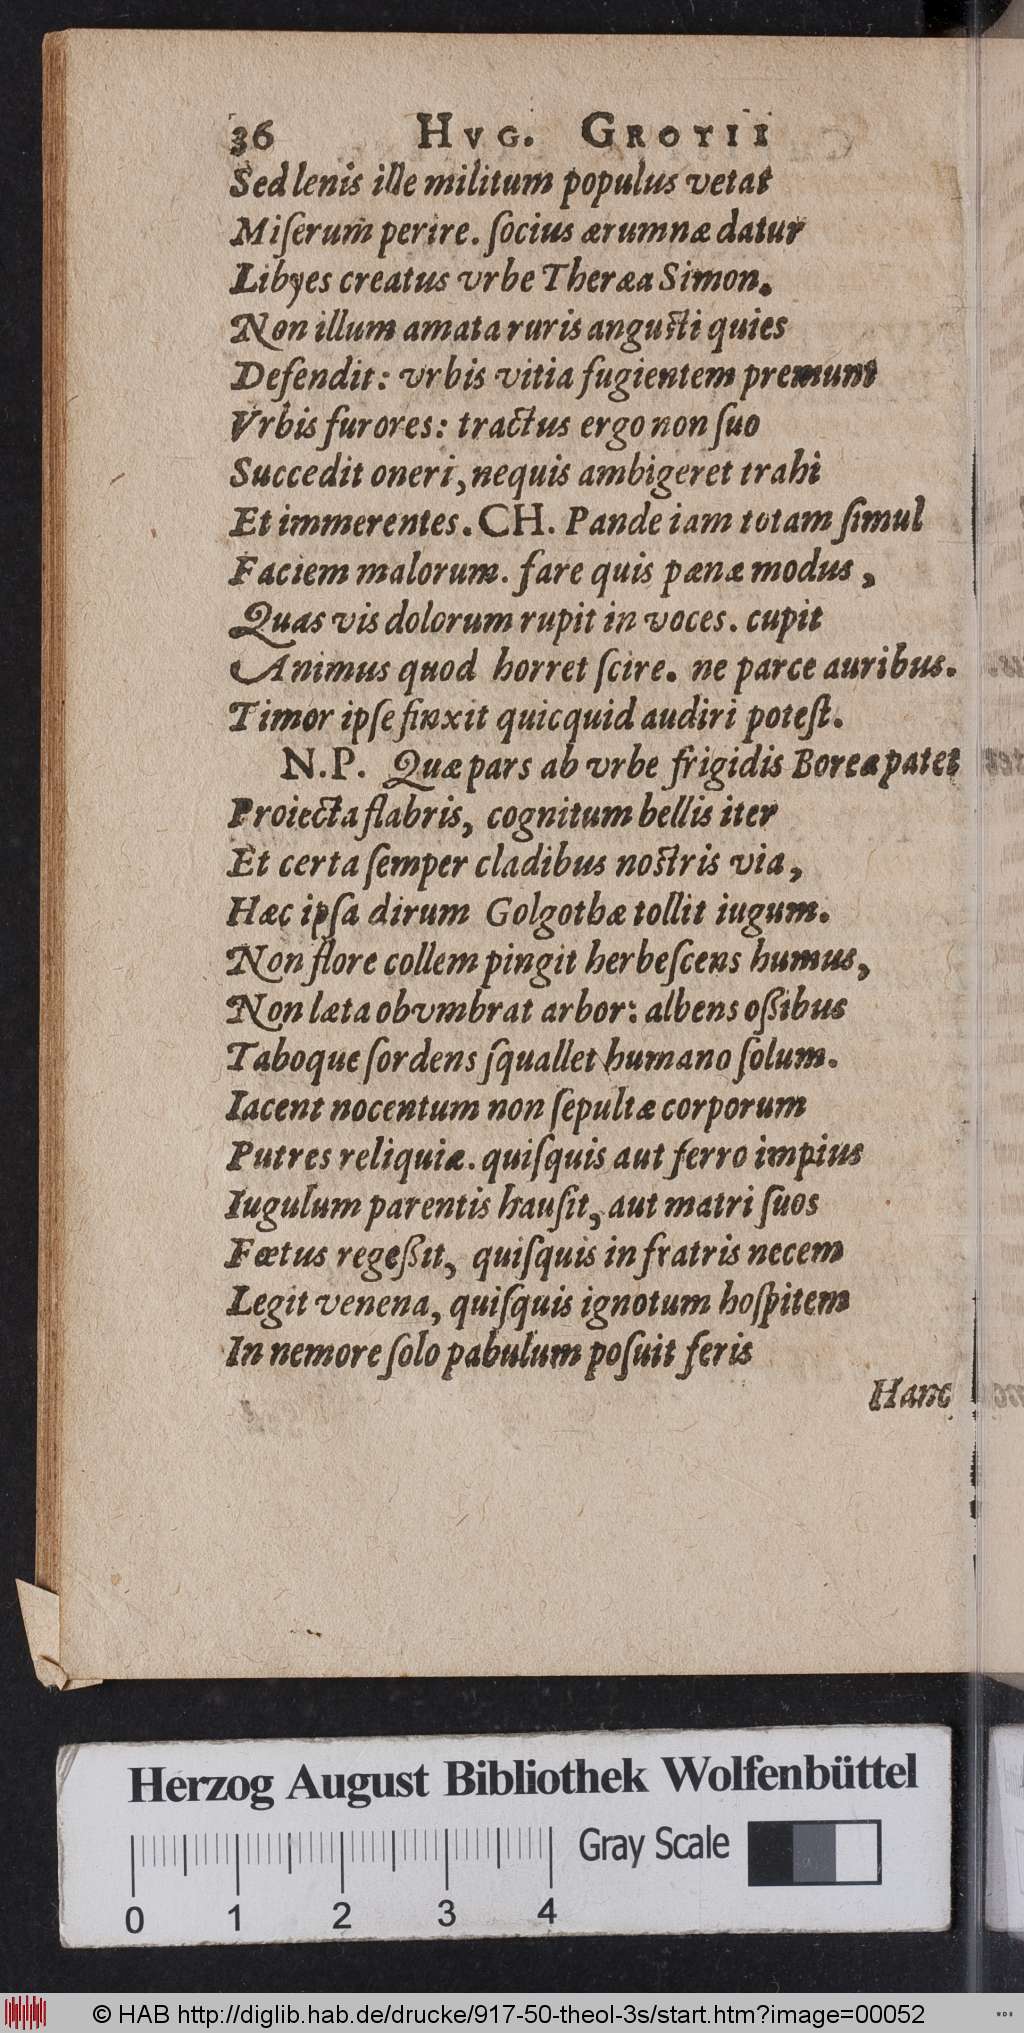 36 HVG. GROTII
Sed lenis ille militum populus vetat
Miſerum perire. ſocius ærumnæ datur
Libyes creatus vrbe Theræa Simon.
Non illum amata ruris anguſti quies
Defendit: vrbis vitia fugientem premunt
Vrbis furores: tractus ergo non ſuo
Succedit oneri, nequis ambigeret trahi
Et immerentes. CH. Pande iam totam ſimul
Faciem malorum. fare quis pænæ modus,
Quas vis dolorum rupit in voces. cupit
Animus quod horret ſcire. ne parce auribus.
Timor ipſe finxit quicquid audiri poteſt.
N.P. Quæ pars ab vrbe frigidis Boreæ patet
Proiecta flabris, cognitum bellis iter
Et certa ſemper cladibus noſtris via,
Hæc ipſa dirum Golgothæ tollit iugum.
Non flore collem pingit herbeſcens humus,
Non læta obvmbrat arbor: albens oßibus
Taboque ſordens ſquallet humano ſolum.
Iacent nocentum non ſepultæ corporum
Putres reliquiæ. quiſquis aut ferro impius
Iugulum parentis hauſit, aut matri ſuos
Fœtus regeßit, quiſquis in fratris necem
Legit venena, quiſquis ignotum hoſpitem
In nemore ſolo pabulum poſuit feris
Hanc
Herzog August Bibliothek Wolfenbüttel
Gray Scale
0 1 2 3 4
© HAB http://diglib.hab.de/drucke/917-50-theol-3s/start.htm?image=00052